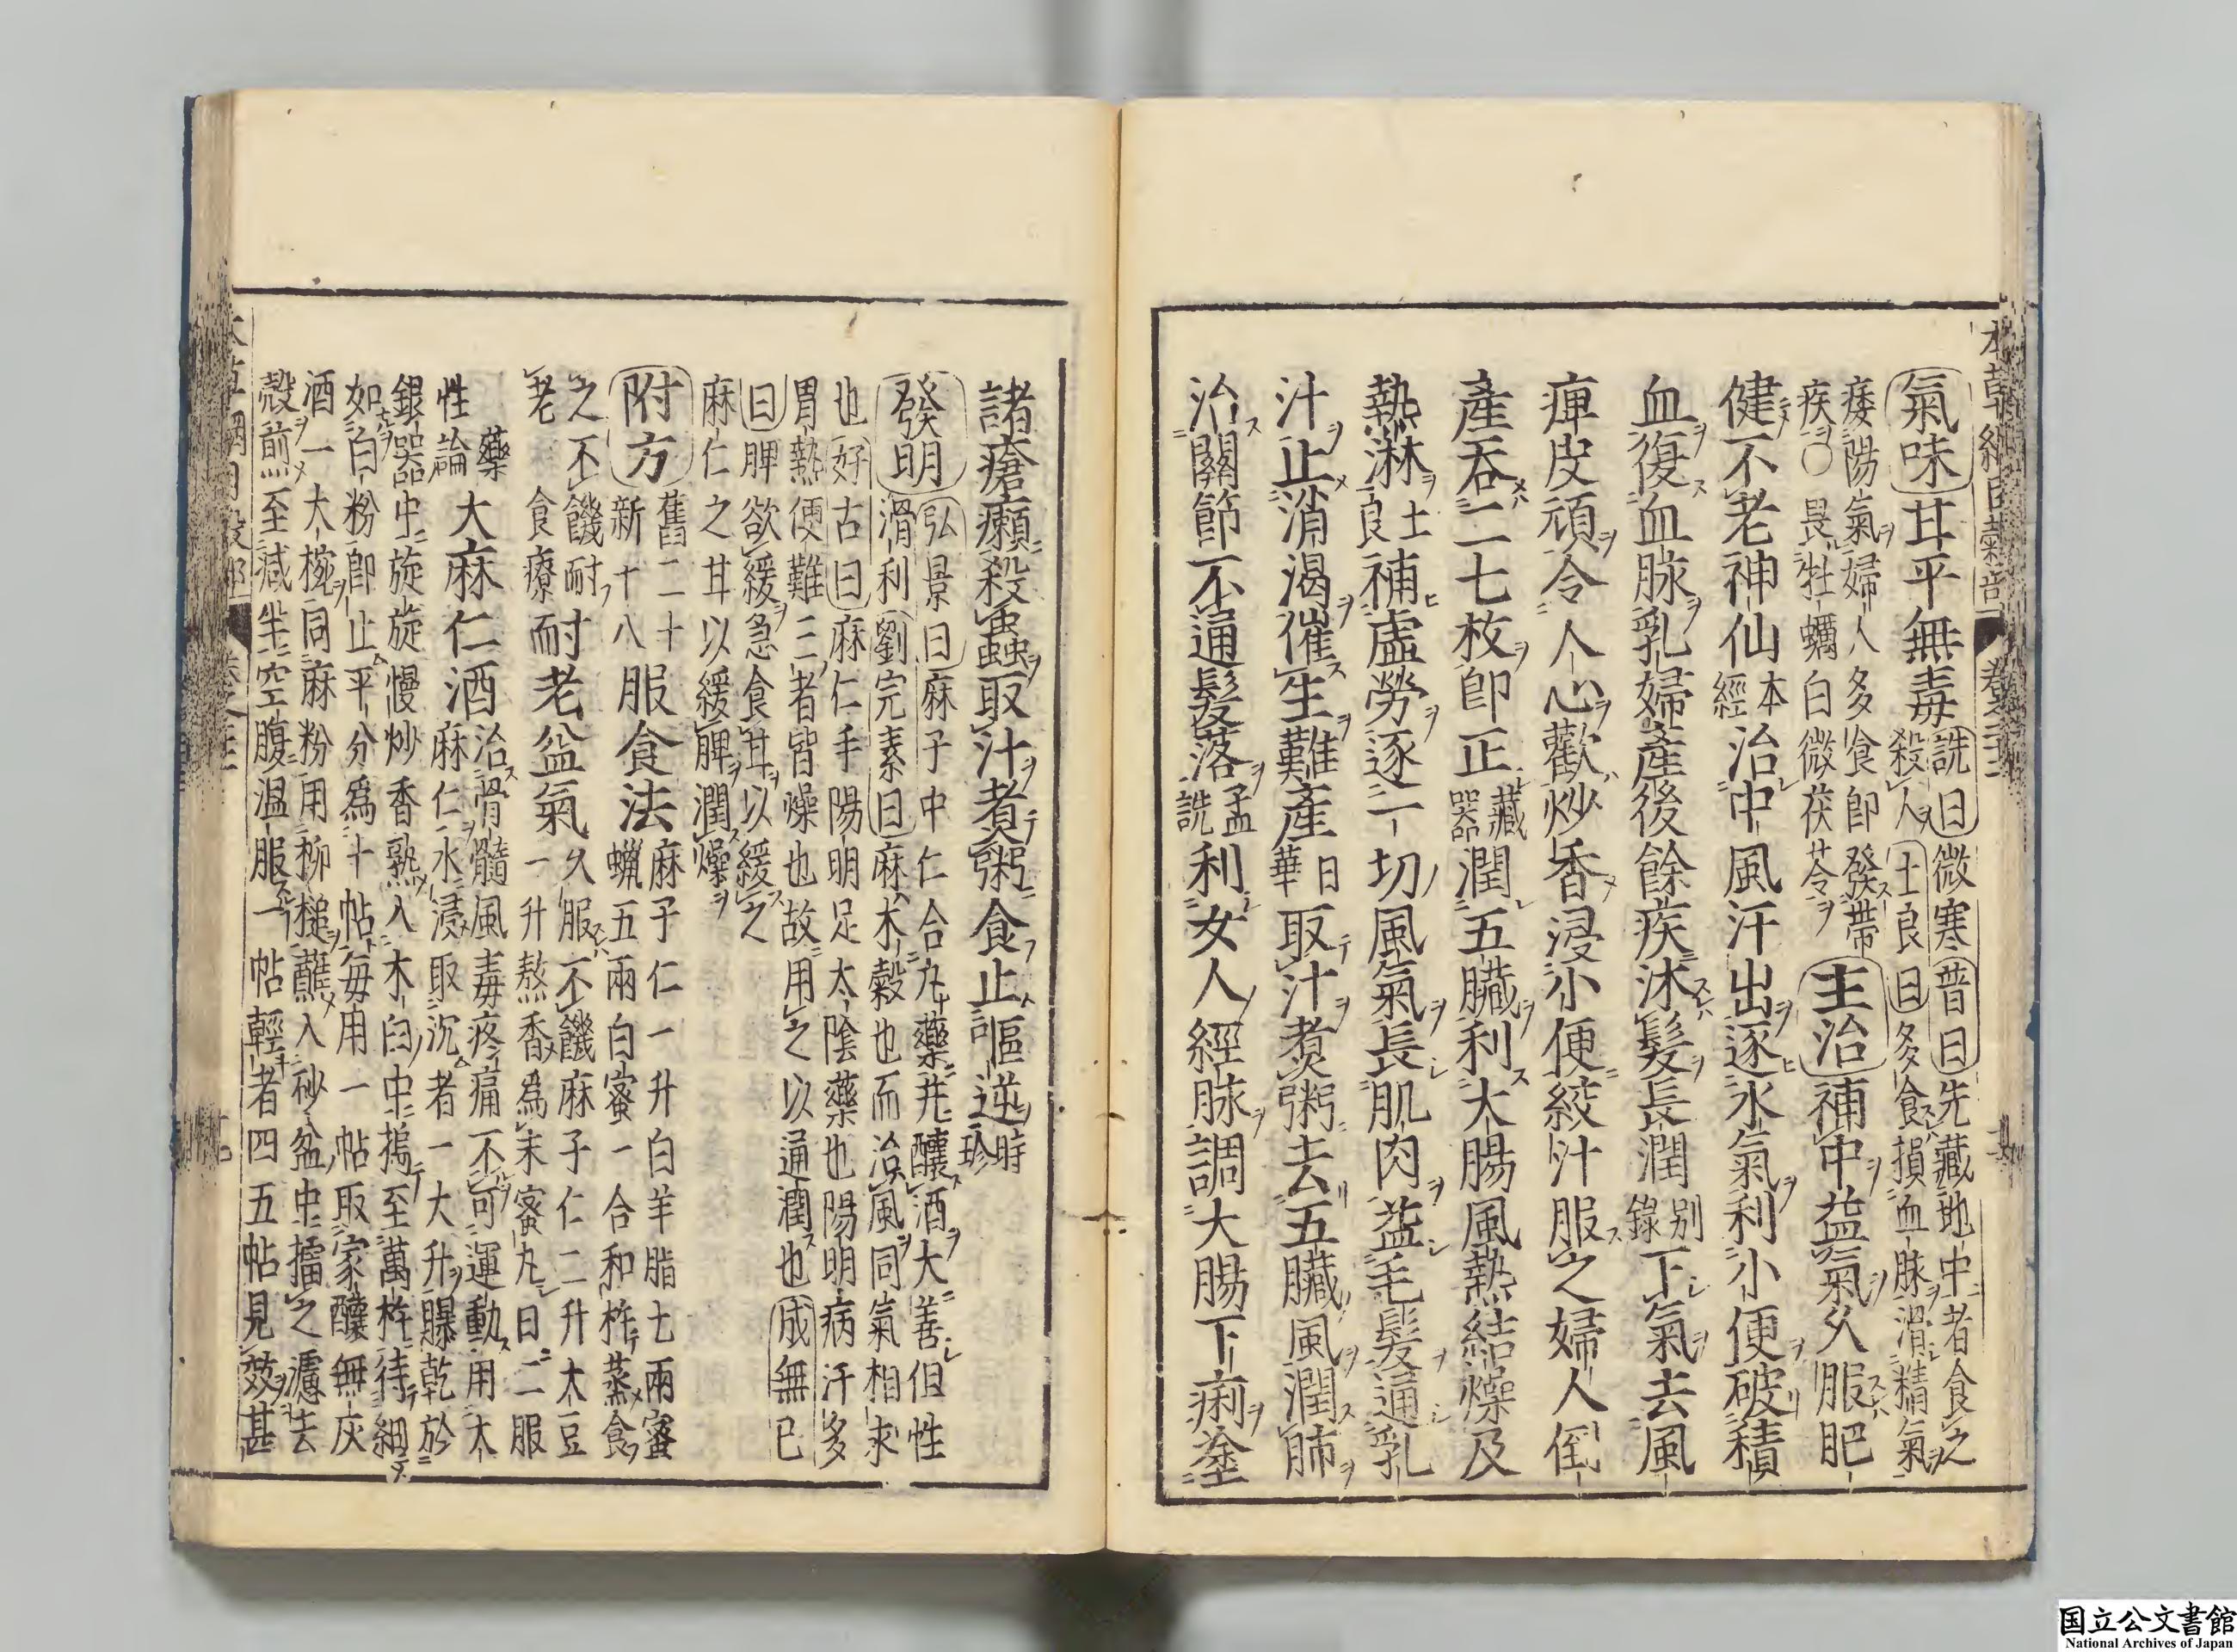 氣味甘平無毒詵曰微寒普曰先藏地中者食之
殺人士良曰多食損血脉滑精氣
痿陽氣婦人多食即發帶
疾〇畏牡蠣白微茯苓主治補中益氣久服肥
健不老神仙本經治中風汗出逐水氣利小便破積
血復血脉乳婦產後餘疾沐髮長潤別錄下氣去風
痺皮頑令人心歡炒香浸小便絞汁服之婦人倒
產吞二七枚即正藏器潤五臟利大腸風熱結燥及
熱淋士良補虛勞逐一切風氣長肌肉益毛髮通乳
汁止消渴催生難產日華取汁煑粥去五臟風潤肺
治關節不通髮落孟詵利女人經脉調大腸下痢塗
諸瘡癩殺蟲取汁煑粥食止嘔逆時珍
發明弘景曰麻子中仁合丸藥并釀酒大善但性
滑利劉完素曰麻木穀也而治風同氣相求
也好古曰麻仁手陽明足太陰藥也陽明病汗多
胃熱便難三者皆燥也故用之以通潤也成無已
曰脾欲緩急食甘以緩之
麻仁之甘以緩脾潤燥
附方舊二十新十八服食法麻子仁一升白羊脂七兩蜜
蠟五兩白蜜一合和杵蒸食
之不饑耐老食療耐老益氣久服不饑麻子仁二升大豆
一升熬香為末蜜丸日二服
藥性論大麻仁酒治骨髓風毒疼痛不可運動用大
麻仁水浸取沉者一大升曝乾於
銀器中旋旋慢炒香熟入木臼中搗至萬杵待細
如白粉即止平分為十帖每用一帖取家釀無灰
酒一大椀同麻粉用柳槌蘸入砂盆中擂之濾去
殼煎至減半空腹温服一帖輕者四五帖見效甚
国立公文書館
National Archives of Japan